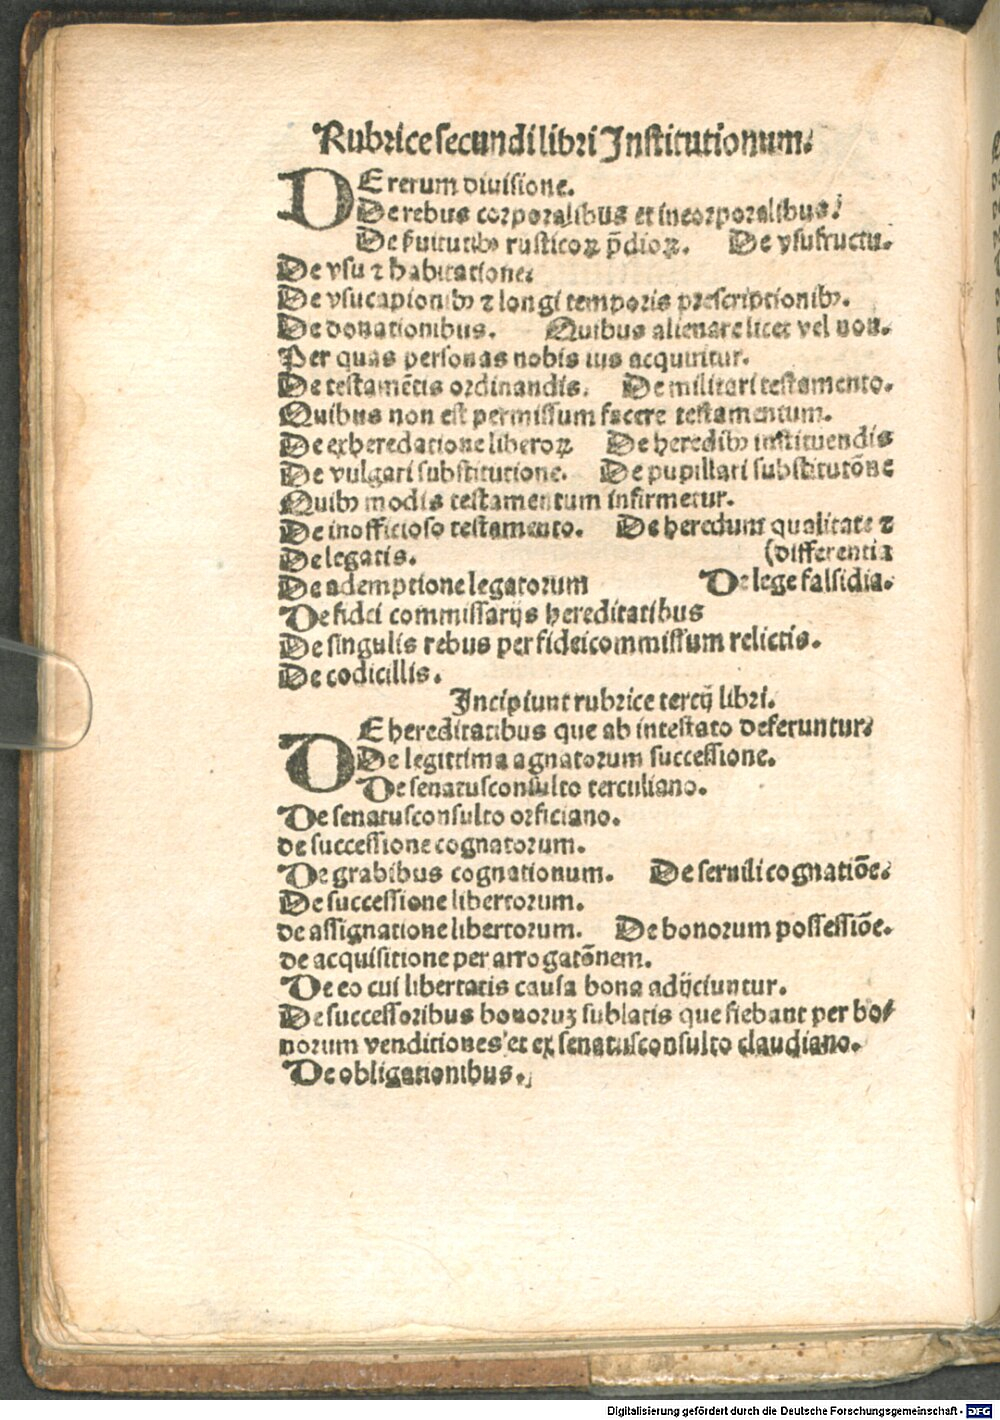 Rubrice secundi libri Institutionum.
DE rerum diuisione.
De rebus corporalibus et incorporalibus.
De ſuitutibꝰ ruſticoꝝ p̄dioꝝ. De vſufructu.
De vſu ⁊ habitatione.
De vſucapionibꝰ ⁊ longi temporis preſcriptionibꝰ.
De donationibus. Quibus alienare licet vel non.
Per quas perſonas nobis ius acquiritur.
De teſtamētis ordinandis. De militari teſtamento.
Quibus non eſt permiſſum facere teſtamentum.
De exheredatione liberoꝝ De heredibꝰ inſtituendis
De vulgari ſubſtitutione. De pupillari ſubſtitutōne
Quibꝰ modis teſtamentum infirmetur.
De inofficioſo teſtamento. De heredum qualitate ⁊
De legatis. (differentia
De ademptione legatorum De lege falſidia.
De fidei commiſſarijs hereditatibus
De ſingulis rebus per fideicommiſſum relictis.
De codicillis.
Incipiunt rubrice tercij libri.
DE hereditatibus que ab inteſtato deferuntur.
De legittima agnatorum ſucceſſione.
De ſenatuſconſulto terculiano.
De ſenatuſconſulto orficiano.
de ſucceſſione cognatorum.
De grabibus cognationum. De ſeruili cognatiōe.
De ſucceſſione libertorum.
de aſſignatione libertorum. De bonorum poſſeſſiōe.
de acquiſitione per arrogatōnem.
De eo cui libertatis cauſa bona adijciuntur.
De ſucceſſoribus bonoruꝫ ſublatis que fiebant per bo⸗
norum venditiones et ex ſenatuſconſulto claudiano.
De obligationibus.
Digitalisierung gefördert durch die Deutsche Forschungsgemeinschaft - DFG